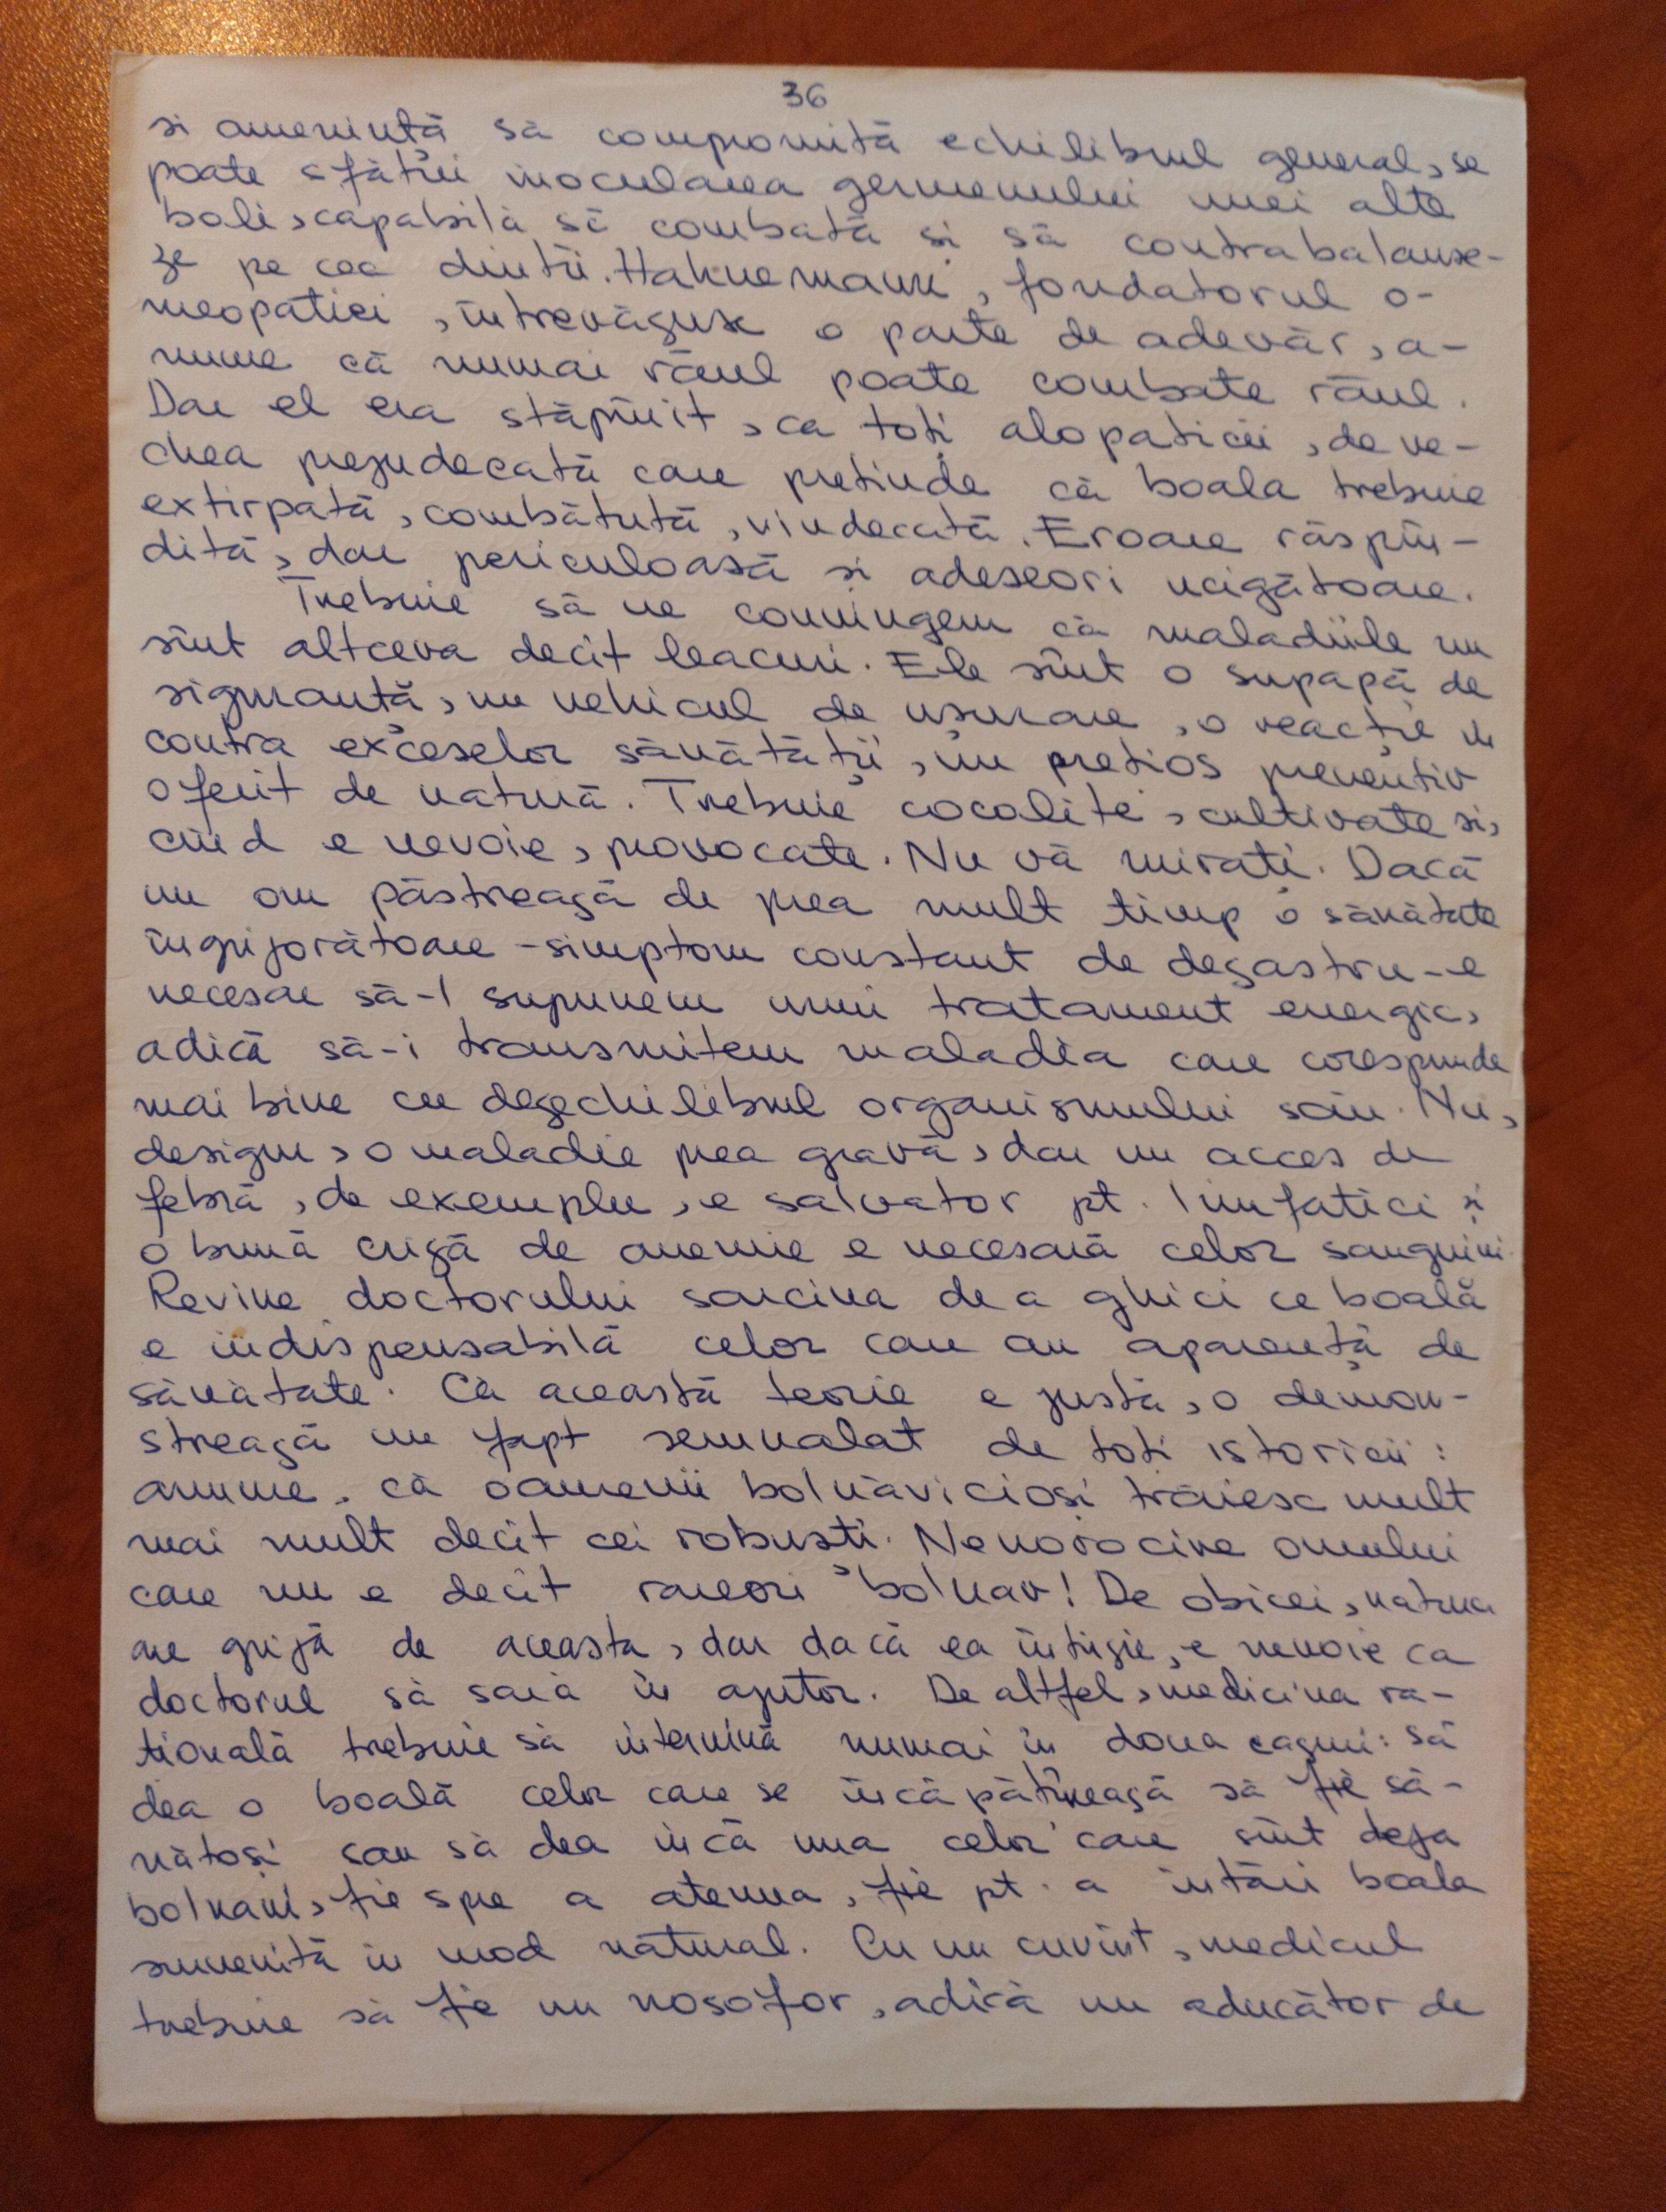 36
si amenință să compromită echilibrul general, se
poate sfătui inocularea germenului unei alte
boli, capabilă să combată si să contrabalanse-
ze pe cea dintîi. Hahnemann, fondatorul o-
meopatiei, întrevăzuse o parte de adevăr, a-
nume că numai răul poate combate răul.
Dar el era stăpînit, ca toți alopaticii, de ve-
chea prejudecată care pretinde că boala trebuie
extirpată, combătută, vindecată. Eroare răspîn-
dită, dar periculoasă si adeseori ucigătoare.
Trebuie să ne convingem că maladiile nu
sînt altceva decît leacuri. Ele sînt o supapă de
siguranță, un vehicul de usurare, o reacție în
contra exceselor sănătății, un prețios preventiv
oferit de natură. Trebuie cocolite, cultivate si,
cînd e nevoie, provocate. Nu vă mirați. Dacă
un om păstrează de prea mult timp o sănătate
îngrijorătoare - simptom constant de dezastru - e
necesar să-l supunem unui tratament energic,
adică să-i transmitem maladia care corespunde
mai bine cu dezechilibrul organismului său. Nu,
desigur, o maladie prea gravă, dar un acces de
febră, de exemplu, e salvator pt. limfatici si
o bună criză de anemie e necesară celor sanguini.
Revine doctorului sarcina de a ghici ce boală
e indispensabilă celor care au aparență de
sănătate. Că această teorie e justă, o demon-
strează un fapt semnalat de toți istoricii:
anume, că oamenii bolnăvicioși trăiesc mult
mai mult decît cei robuști. Nenorocire omului
care nu e decît rareori bolnav! De obicei, natura
are grijă de aceasta, dar dacă ea întîrzie, e nevoie ca
doctorul să sară în ajutor. De altfel, medicina ra-
țională trebuie să intervină numai în doua cazuri: să
dea o boală celor care se încăpățînează să fie să-
nătoși sau să dea încă una celor care sînt deja
bolnavi, fie spre a atenua, fie pt. a întări boala
survenită în mod natural. Cu un cuvînt, medicul
trebuie să fie un nosofor, adică un aducător de